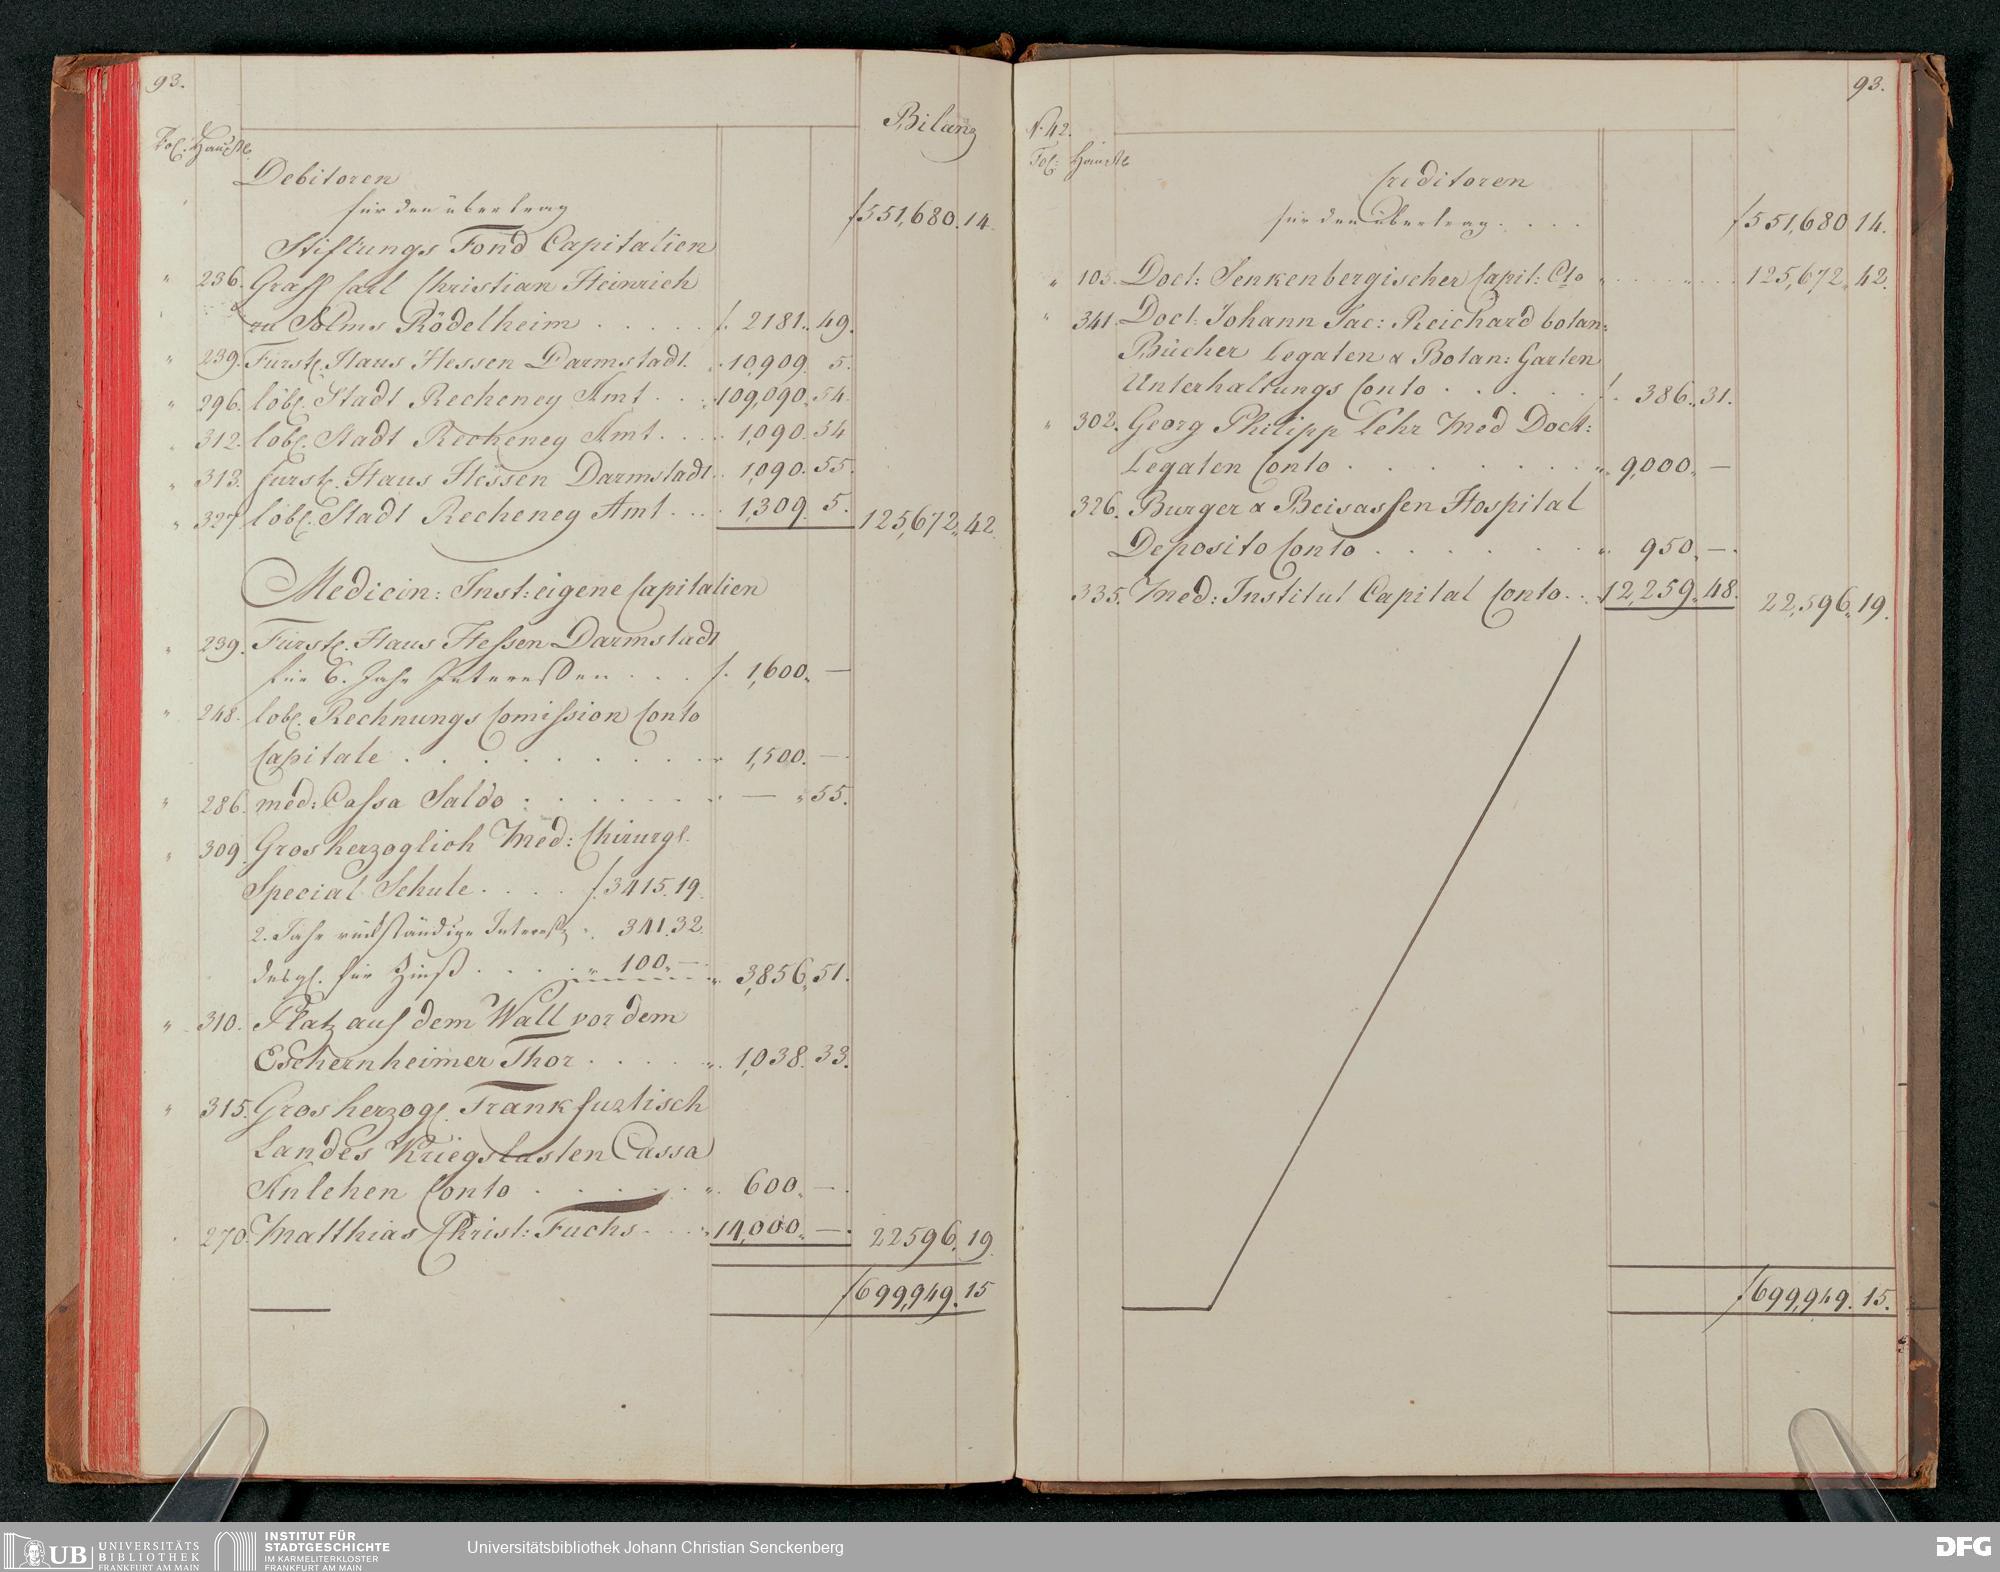 93.
Bilanz
Fol: Haubtb.
Debitoren
für den übertrag f 551,680. 14.
Stiftungs Fond Capitalien
" 236. Graff Carl Christian Heinrich
zu Solms Rödelheim . . . . . f. 2181. 49.
" 239. Fürstl. Haus Hessen Darmstadt. " 10,909. 5.
" 296. löbl. Stadt Recheney Amt . . " 109,090. 54.
" 312. löbl. Stadt Recheney Amt . . . . 1,090. 54
" 313. fürstl. Haus Hessen Darmstadt . . 1,090. 55.
" 327. löbl. Stadt Recheney Amt . . . . 1,309. 5. 125,672. 42.
Medicin: Inst: eigene Capitalien
" 239. Fürstl. Haus Hessen Darmstadt
für 6. Jahr Interessen . . . f. 1,600. —
" 248. löbl. Rechnungs Comission Conto
Capitale . . . . . . . . . " 1,500. —.
" 286. med: Cassa Saldo . . . . . . " — " 55.
" 309. Grosherzoglich Med: Chirurgl.
Special Schule . . . . f. 3415. 19.
2. Jahr rückständige Interesse ". 341. 32.
desgl. für Zinß . . . . " 100. — " 3,856. 51.
" 310. Platz auf dem Wall vor dem
Eschernheimer Thor . . . . ". 1,038. 33.
" 315. Grosherzogl. Frankfurtisch
Landes Kriegslasten Cassa
Anlehen Conto . . . . . ". 600. —.
270. Matthias Christ: Fuchs . . . " 14,000. —. 22596. 19.
f 699,949. 15
93.
N. 42.
Fol: Haubtb
Creditoren
für den übertrag . . . . f 551,680 14.
" 105. Doct: Senkenbergischer Capit: Cto " . . . . . 125,672. 42.
" 341. Doct: Johann Jac: Reichard botan:
Bücher Legaten & Botan: Garten
Unterhaltungs Conto . . . . . f. 386. 31.
" 302. Georg Philipp Lehr Med Doct:
Legaten Conto . . . . . . . ". 9,000. —
326. Burger & Beisassen Hospital
Deposito Conto . . . . . . ". 950. —.
335. Med: Institut Capital Conto . . . 12,259. 48. 22,596. 19.
f 699,949. 15.
UB
UNIVERSITÄTS
BIBLIOTHEK
FRANKFURT AM MAIN
INSTITUT FÜR
STADTGESCHICHTE
IM KARMELITERKLOSTER
FRANKFURT AM MAIN
Universitätsbibliothek Johann Christian Senckenberg
DFG